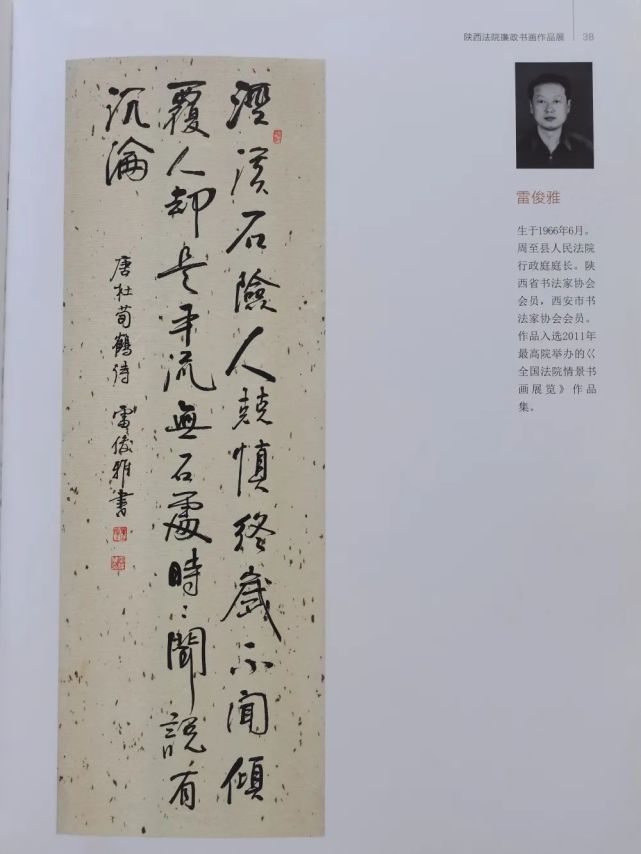 陕西法院廉政书画作品展 | 38
涇溪石險人兢慎終歲不聞傾
覆人却是平流無石處時〻聞說有
沉淪
唐杜荀鶴詩 雷俊雅書
雷俊雅
生于1966年6月。
周至县人民法院
行政庭庭长。陕
西省书法家协会
会员，西安市书
法家协会会员。
作品入选2011年
最高院举办的《
全国法院情景书
画展览》作品
集。